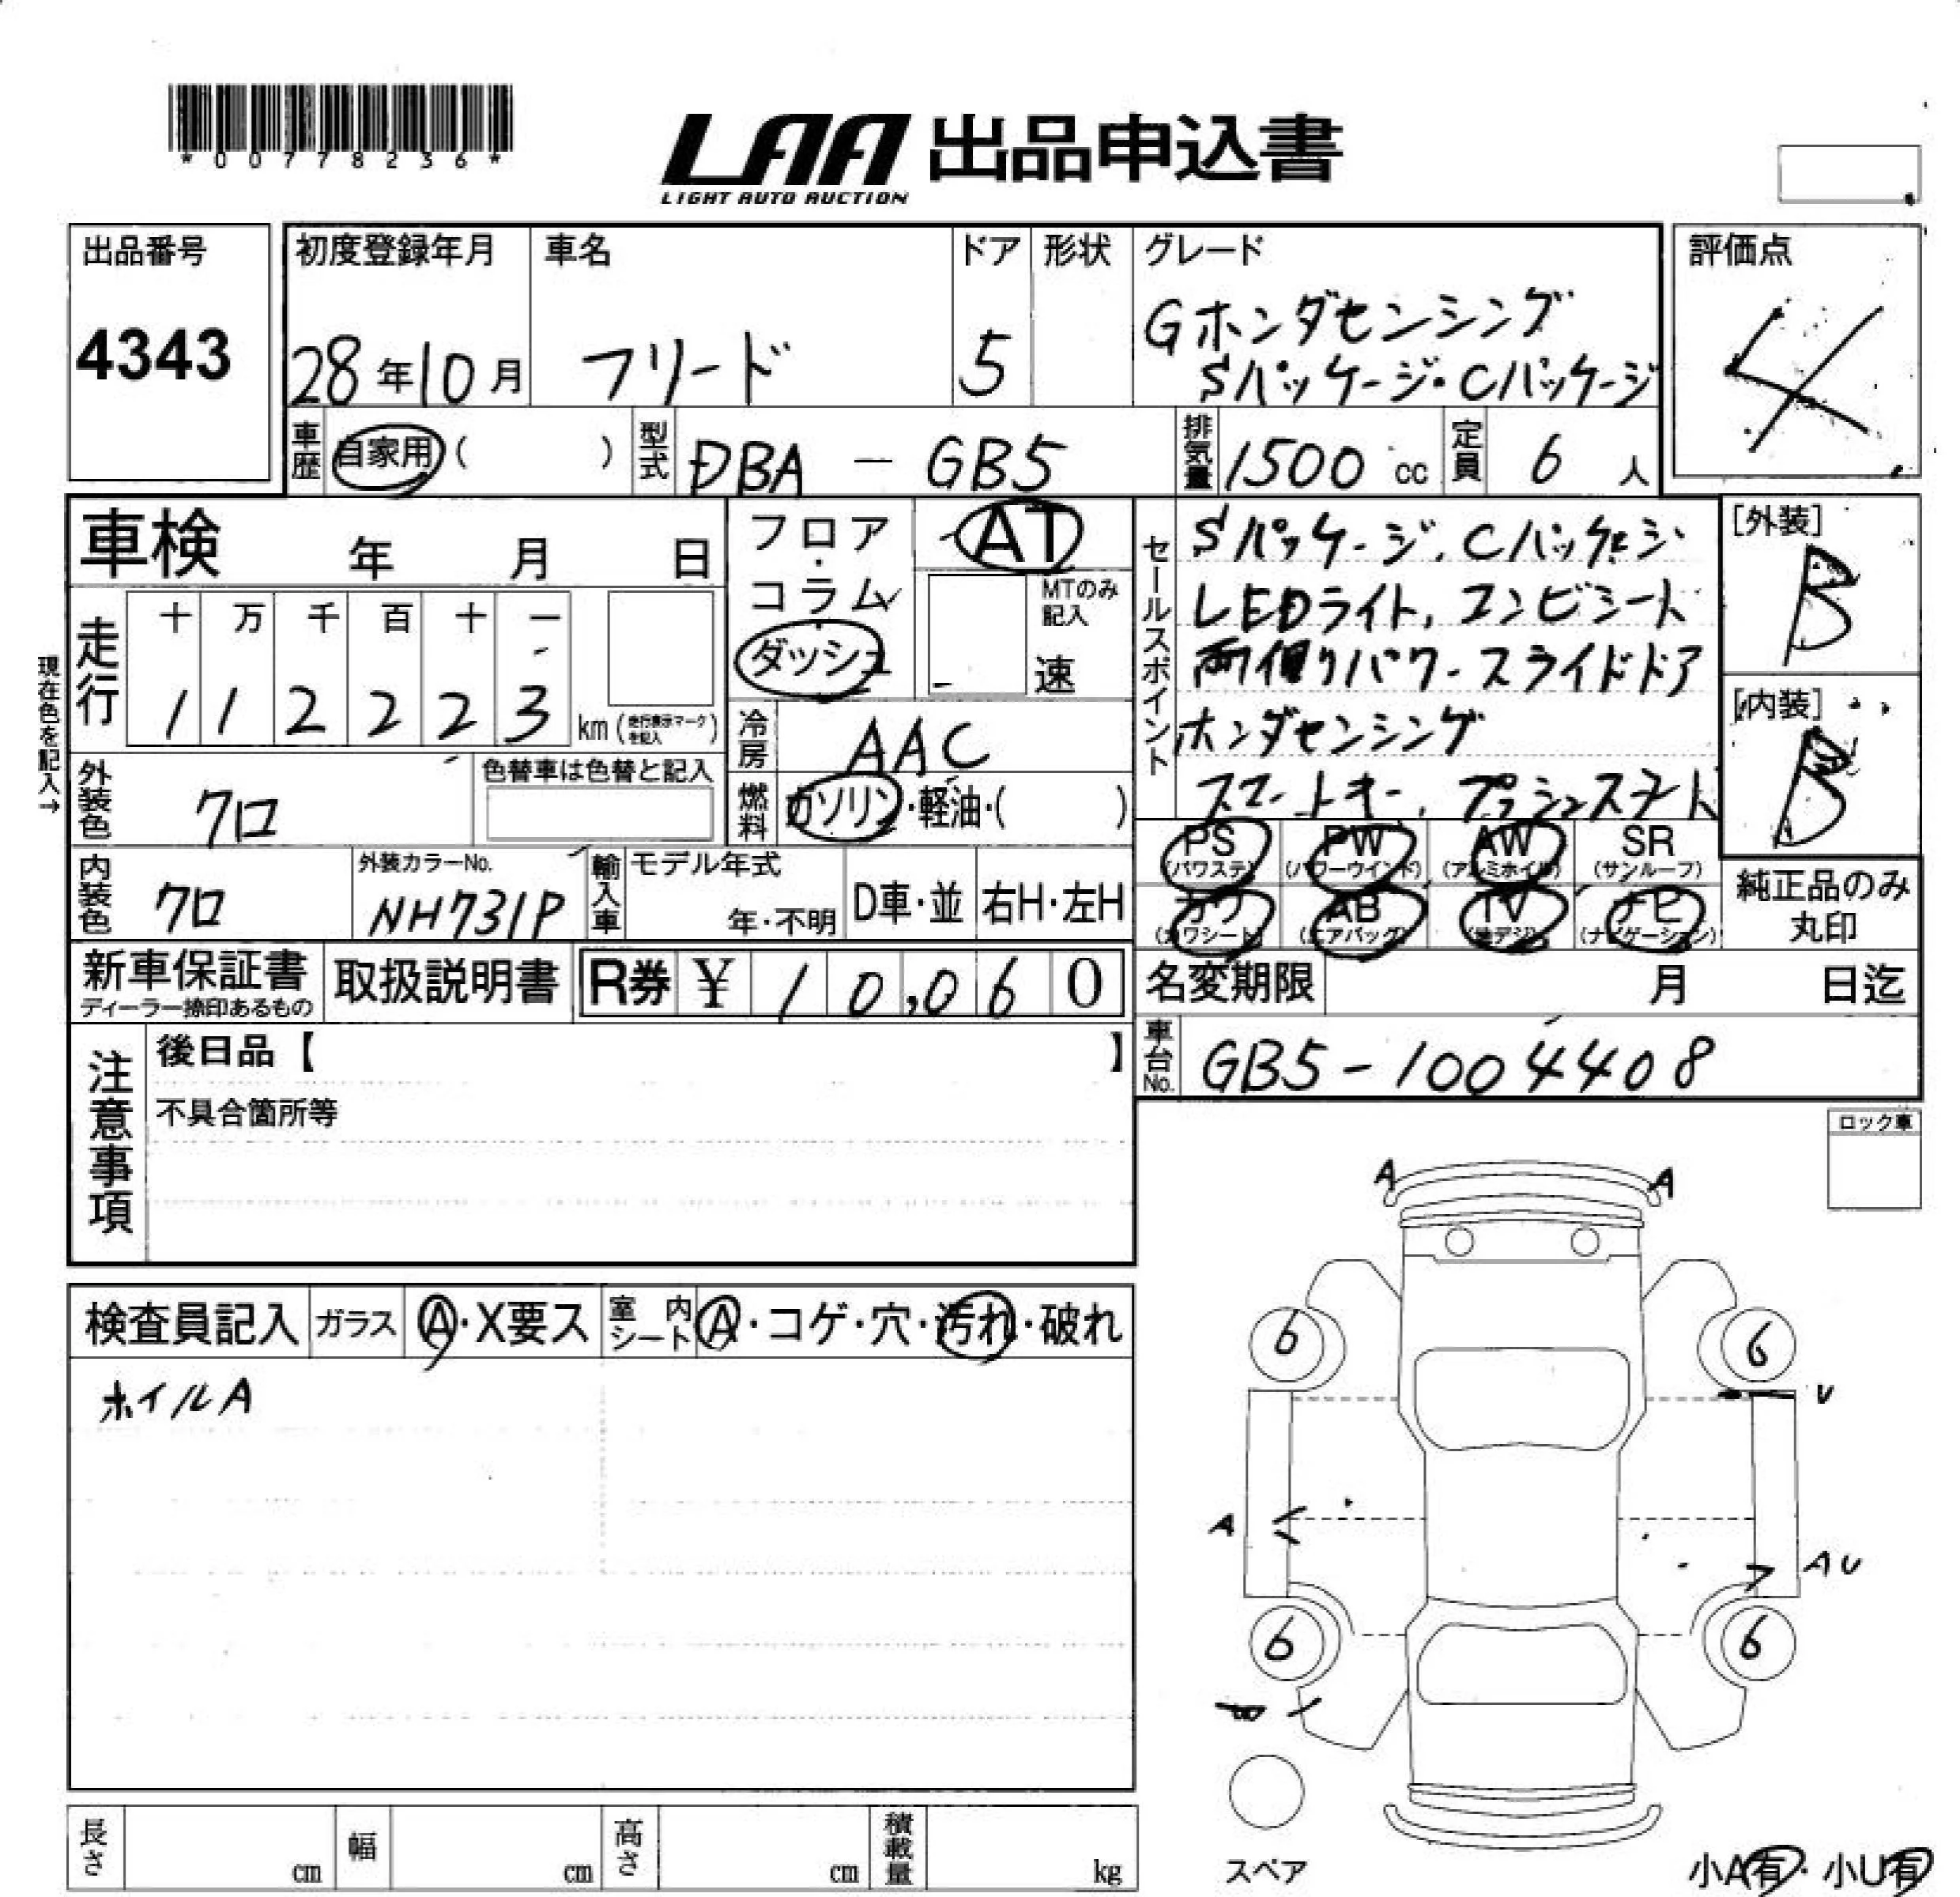 *00778236*
LAA 出品申込書
LIGHT AUTO AUCTION
出品番号
4343
初度登録年月
28年10月
車名
フリード
ドア
5
形状
グレード
Gホンダセンシング
Sパッケージ・Cパッケージ
評価点
4
車歴
自家用( )
型式
DBA - GB5
排気量
1500 cc
定員
6 人
車検 年 月 日
フロア・コラム・ダッシュ
AT
MTのみ記入
速
走行
十 万 千 百 十 一
1 1 2 2 2 3
km(走行表示マークを記入)
現在色を記入→
冷房
AAC
外装色
クロ
色替車は色替と記入
燃料
ガソリン・軽油・( )
内装色
クロ
外装カラーNo.
NH731P
輸入車
モデル年式
年・不明
D車・並
右H・左H
セールスポイント
Sパッケージ、Cパッケージ
LEDライト、コンビシート
両側パワースライドドア
ホンダセンシング
スマートキー、プッシュスタート
[外装]
B
[内装]
B
PS (パワステ)
PW (パワーウインド)
AW (アルミホイル)
SR (サンルーフ)
カワ (カワシート)
AB (エアバッグ)
TV (地デジ)
ナビ (ナビゲーション)
純正品のみ
丸印
新車保証書
ディーラー捺印あるもの
取扱説明書
R券 ¥ 10,060
名変期限 月 日迄
車台No.
GB5-1004408
注意事項
後日品【 】
不具合箇所等
ロック車
検査員記入
ガラス A・X要ス
室内シート A・コゲ・穴・汚れ・破れ
ホイルA
A A
6 6
U
A
AU
6 6
スペア
長さ cm
幅 cm
高さ cm
積載量 kg
小A有・小U有